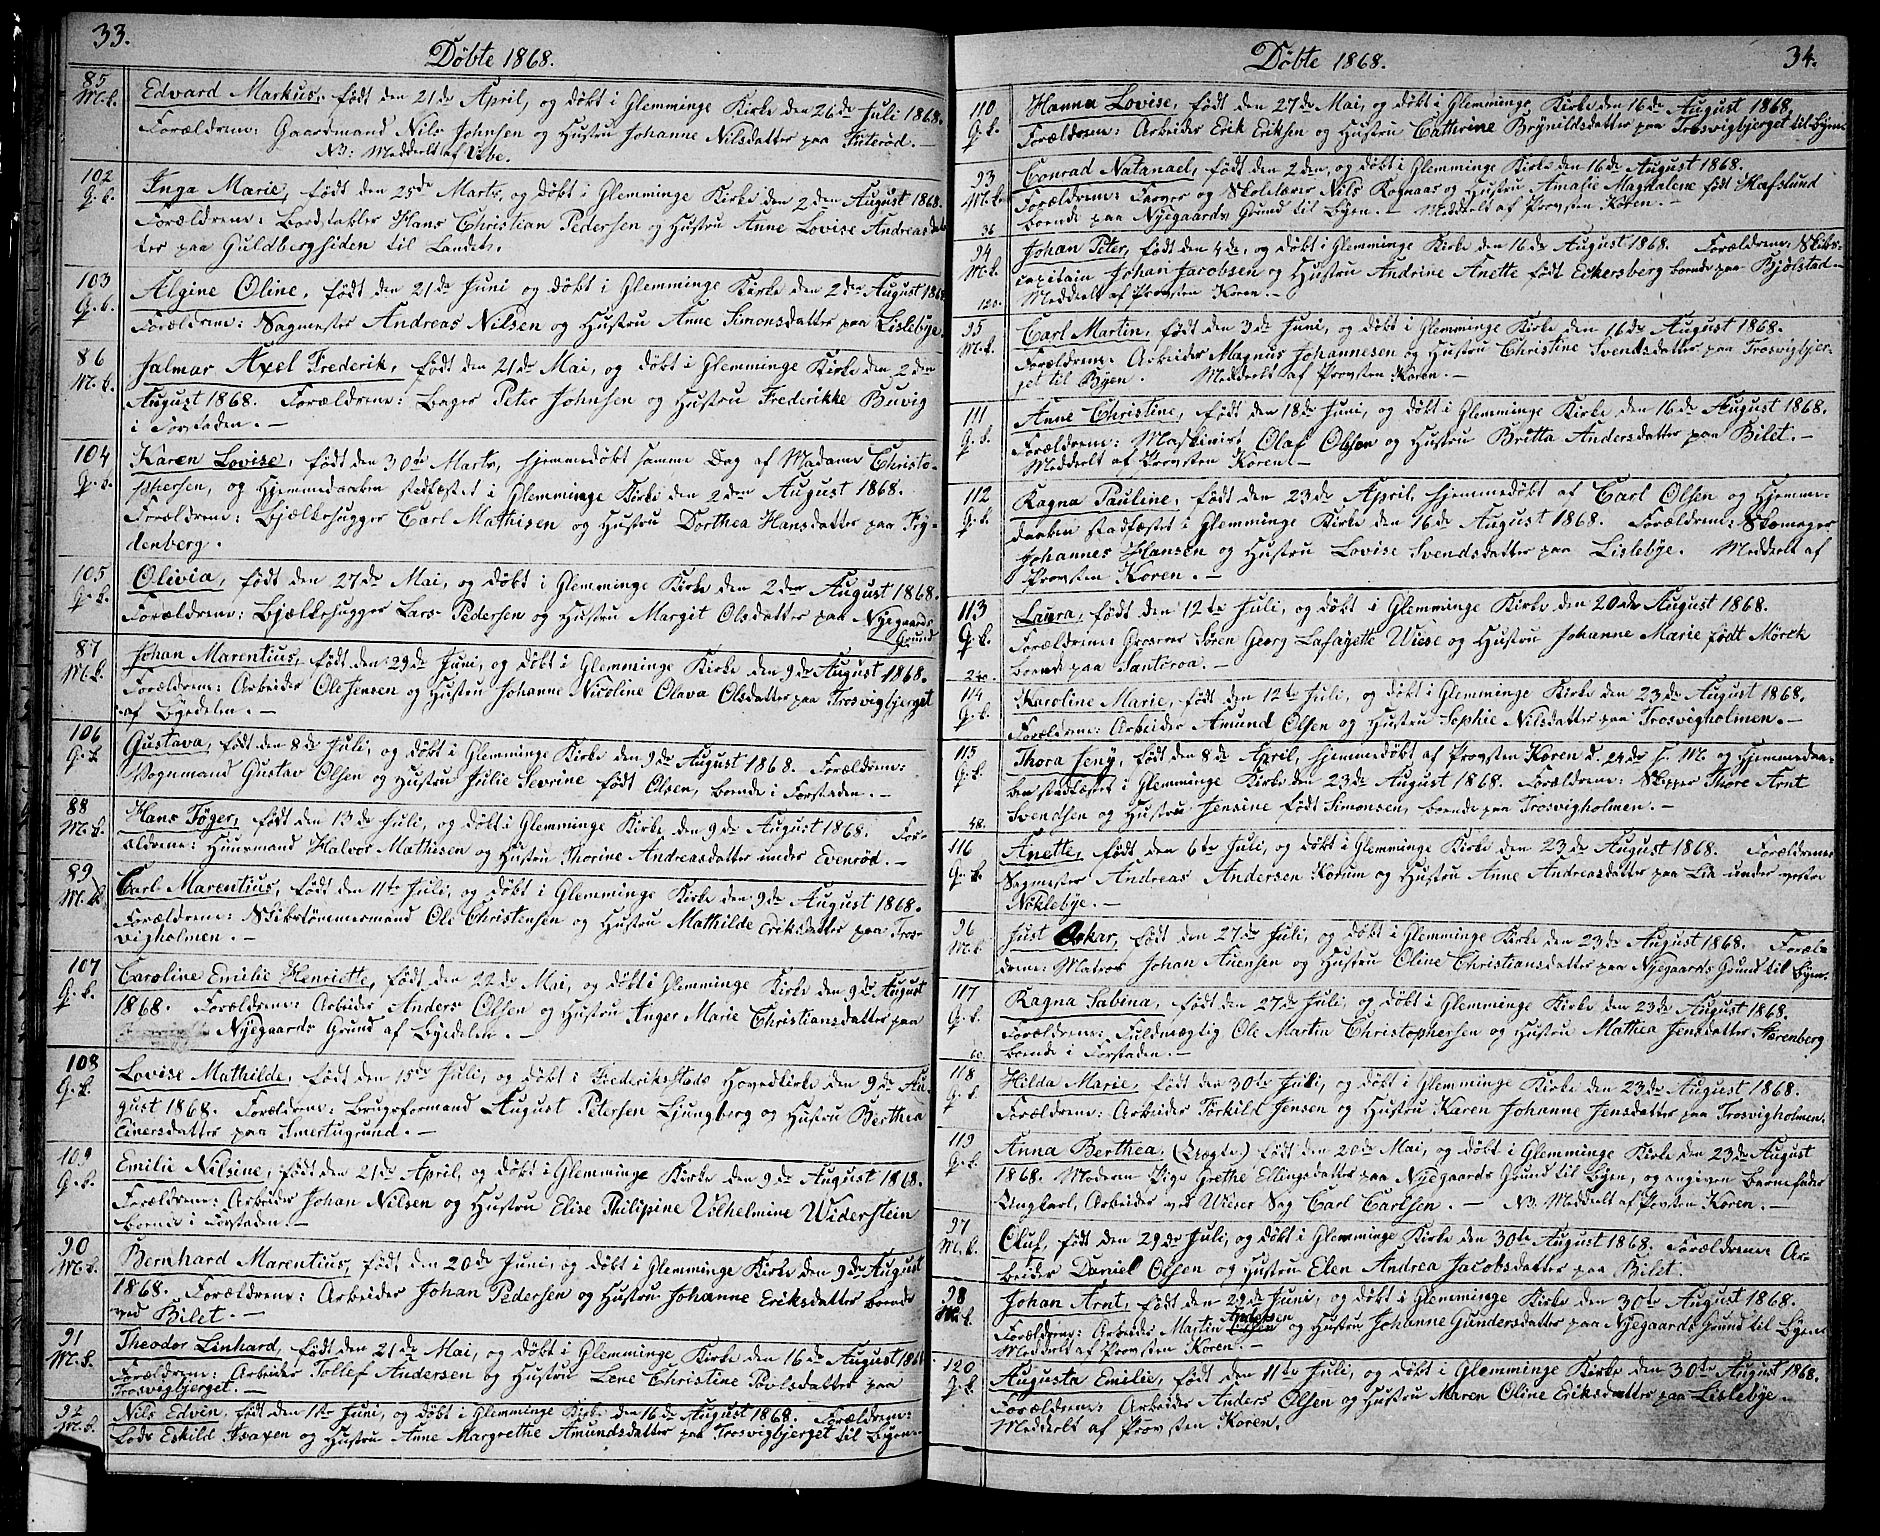 33.
Döbte 1868.
85
M.k.
Edvard Markus, født den 21de April, og døbt i Glemminge Kirke den 26de Juli 1868.
Forældrene: Gaardmand Nils Johnsen og Hustru Johanne Nilsdatter paa
NB: Meddelt af
102
G.k.
Inga Marie, født den 25de Marts, og døbt i Glemminge Kirke den 2den August 1868.
Forældrene: Hans Christian Pedersen og Hustru Anne Lovise Andreasdat
ter paa Guldbergsiden til Landet.
103
G.k.
Algine Oline, født den 21de Juni og døbt i Glemminge Kirke den 2den August 1868
Forældrene: Sagmester Andreas Nilsen og Hustru Anne Simonsdatter paa Lislebye.
86
M.k.
Jalmar Axel Frederik, født den 21de Mai, og døbt i Glemminge Kirke den 2den
August 1868. Forældrene: Bager Peter Johnsen og Hustru Frederikke Buvig
i Forstaden. —
104
G.k.
Karen Lovise, født den 30te Marts, hjemmedøbt samme Dag af Madame Christo-
phersen, og Hjemmedaaben stadfæstet i Glemminge Kirke den 2den August 1868.
Forældrene: Bjælkehugger Carl Mathisen og Hustru Dorthea Hansdatter paa Fry-
denberg.
105
G.k.
Olivia, født den 27de Mai, og døbt i Glemminge Kirke den 2den August 1868.
Forældrene: Bjælkehugger Lars Pedersen og Hustru Margit Olsdatter paa Nyegaards
Grund
87
M.k.
Johan Marentius, født den 29de Juni, og døbt i Glemminge Kirke den 9de August 1868.
Forældrene: Arbeider Ole Jensen og Hustru Johanne Nicoline Olava Olsdatter paa Trosvigbjerget
af Byedelen. —
106
G.k
Gustava, født den 8de Juli, og døbt i Glemminge Kirke den 9de August 1868. Forældrene:
Vognmand Gustav Olsen og Hustru Julie Sevrine født Olsen, boende i Forstaden. —
88
M.k.
Hans Töger, født den 13de Juli, og døbt i Glemminge Kirke den 9de August 1868. For-
ældrene: Huusmand Halvor Mathisen og Hustru Thorine Andreasdatter under Evenrød. —
89
M.k
Carl Marentius, født den 11te Juli, og døbt i Glemminge Kirke den 9de August 1868.
Forældrene: Skibstømmermand Ole Christensen og Hustru Mathilde Eriksdatter paa Tros-
vigholmen. —
107
G.k.
Caroline Emilie Henriette, født den 22de Mai, og døbt i Glemminge Kirke den 9de August
1868. Forældrene: Arbeider Anders Olsen og Hustru Inger Marie Christiansdatter paa
Nyegaards Grund af Byedelen. —
108
G.k.
Lovise Mathilde, født den 15de Juli, og døbt i Frederiksstads Hovedkirke den 9de Au-
gust 1868. Forældrene: Brugsformand August Petersen Ljungberg og Hustru Berthea
Einersdatter paa Smertugrund. —
109
G.k.
Emilie Nilsine, født den 21de April, og døbt i Glemminge Kirke den 9de August 1868.
Forældrene: Arbeider Johan Nilsen og Hustru Elise Philipine Vilhelmine Widerstein
boende i Forstaden —
90
M.k.
Bernhard Marentius, født den 20de Juni, og døbt i Glemminge Kirke den 9de August
1868. Forældrene: Arbeider Johan Pedersen og Hustru Johanne Eriksdatter boende
ved Bilet. —
91
M.k.
Theodor Linhard, født den 21de Mai, og døbt i Glemminge Kirke den 16de August 1868
Forældrene: Arbeider Tollef Andersen og Hustru Lene Christine Povlsdatter paa
Trosvigbjerget. —
92
M.k.
Nils Edvin, født den 1ste Juni, og døbt i Glemminge Kirke den 16de August 1868. Forældrene:
Lods Eskild Isaxen og Hustru Anne Margrethe Amundsdatter paa Trosvigbjerget til Byen. —
Döbte 1868.
34.
110
G.k.
Hanna Lovise, født den 27de Mai, og døbt i Glemminge Kirke den 16de August 1868.
Forældrene: Arbeider Erik Eriksen og Hustru Cathrine Brynildsdatter paa Trosvigbjerget til Byen
93
M.k.
36
Conrad Natanael, født den 2den, og døbt i Glemminge Kirke den 16de August 1868.
Forældrene: Farver og Skolelærer Nils og Hustru Amalie Magdalene født Hafslund
boende paa Nyegaards Grund til Byen. — Meddelt af Provsten Koren. —
94
M.k.
120.
Johan Peter, født den 4de, og døbt i Glemminge Kirke den 16de August 1868. Forældrene: Skibs-
capitain Johan Jacobsen og Hustru Andrine Anette født Eckersberg boende paa Kjølstad —
Meddelt af Provsten Koren. —
95
M.k.
Carl Martin, født den 3de Juni, og døbt i Glemminge Kirke den 16de August 1868.
Forældrene: Arbeider Magnus Johannesen og Hustru Christine Svendsdatter paa Trosvigbjer-
get til Byen. Meddelt af Provsten Koren. —
111
G.k.
Anne Christine, født den 18de Juni, og døbt i Glemminge Kirke den 16de August 1868.
Forældrene: Maskinist Olaf Olsen og Hustru Britta Andersdatter paa Bilet. —
Meddelt af Provsten Koren. —
112
G.k.
Ragna Pauline, født den 23de April, hjemmedøbt af Carl Olsen og Hjemme-
daaben stadfæstet i Glemminge Kirke den 16de August 1868. Forældrene: Skomager
Johannes Hansen og Hustru Lovise Svendsdatter paa Lislebye. Meddelt af
Provsten Koren. —
113
G.k.
240.
Laura, født den 12te Juli, og døbt i Glemminge Kirke den 20de August 1868.
Forældrene: Grosserer Søren Georg Lafayette Wiese og Hustru Johanne Marie født Mørck
boende paa Santoroa. —
114
G.k.
Karoline Marie, født den 12te Juli, og døbt i Glemminge Kirke den 23de August 1868.
Forældrene: Arbeider Amund Olsen og Hustru Sophie Nilsdatter paa Trosvigholmen. —
115
G.k.
48.
Thora Jeny, født den 8de April, hjemmedøbt af Provsten Koren d. 24de s. M. og Hjemmedaa-
ben stadfæstet i Glemminge Kirke den 23de August 1868. Forældrene: Skipper Thore Arnt
Svendsen og Hustru Jensine født Simonsen, boende paa Trosvigholmen. —
116
G.k.
Anette, født den 6te Juli, og døbt i Glemminge Kirke den 23de August 1868. Forældrene:
Sagmester Andreas Andersen Korum og Hustru Anne Andreasdatter paa Lia under vestre
Noklebye. —
96
M.k
Just Oskar, født den 27de Juli, og døbt i Glemminge Kirke den 23de August 1868. Foræl-
drene: Matros Johan Auensen og Hustru Oline Christiansdatter paa Nyegaards Grund til Byen.
117
G.k.
60.
Ragna Sabina, født den 27de Juli, og døbt i Glemminge Kirke den 23de August 1868.
Forældrene: Fuldmægtig Ole Martin Christophersen og Hustru Mathea Jensdatter Narenberg
boende i Forstaden. —
118
G.k.
Hilda Marie, født den 30te Juli, og døbt i Glemminge Kirke den 23de August 1868.
Forældrene: Arbeider Torkild Jensen og Hustru Karen Johanne Jensdatter paa Trosvigholmen.
119
G.k.
Anna Berthea, (Uægte) født den 20de Mai, og døbt i Glemminge Kirke den 23de August
1868. Moderen Pige Grethe Ellingsdatter paa Nyegaards Grund til Byen, og angiven Barnefader
Ungkarl, Arbeider ved Wieses Sag Carl Carlsen. — NB. Meddelt af Provsten Koren. —
97
M.k.
Oluf, født den 29de Juli, og døbt i Glemminge Kirke den 30te August 1868. Forældrene: Ar-
beider Daniel Olsen og Hustru Elen Andrea Jacobsdatter paa Bilet.
98
M.k.
Johan Arnt, født den 29de Juni, og døbt i Glemminge Kirke den 30te August 1868.
Andersen
Forældrene: Arbeider Martin Olsen og Hustru Johanne Gundersdatter paa Nyegaards Grund til Byen.
Meddelt af Provsten Koren. —
120
G.k.
Augusta Emilie, født den 11te Juli, og døbt i Glemminge Kirke den 30te August 1868.
Forældrene: Arbeider Anders Olsen og Hustru Maren Oline Eriksdatter paa Lislebye. —
Meddelt af Provsten Koren.